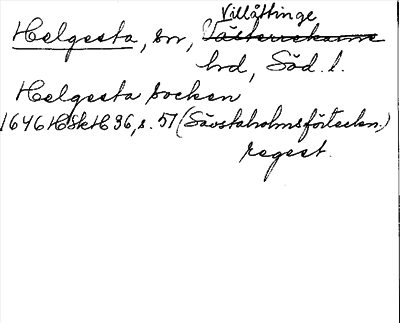 Villåttinge
Helgesta, sn, Västerrekarne
hd, Söd. l.
Helgesta socken
1646 HSkH 36, s. 57 (Sävstaholmsförteckn.)
regest.